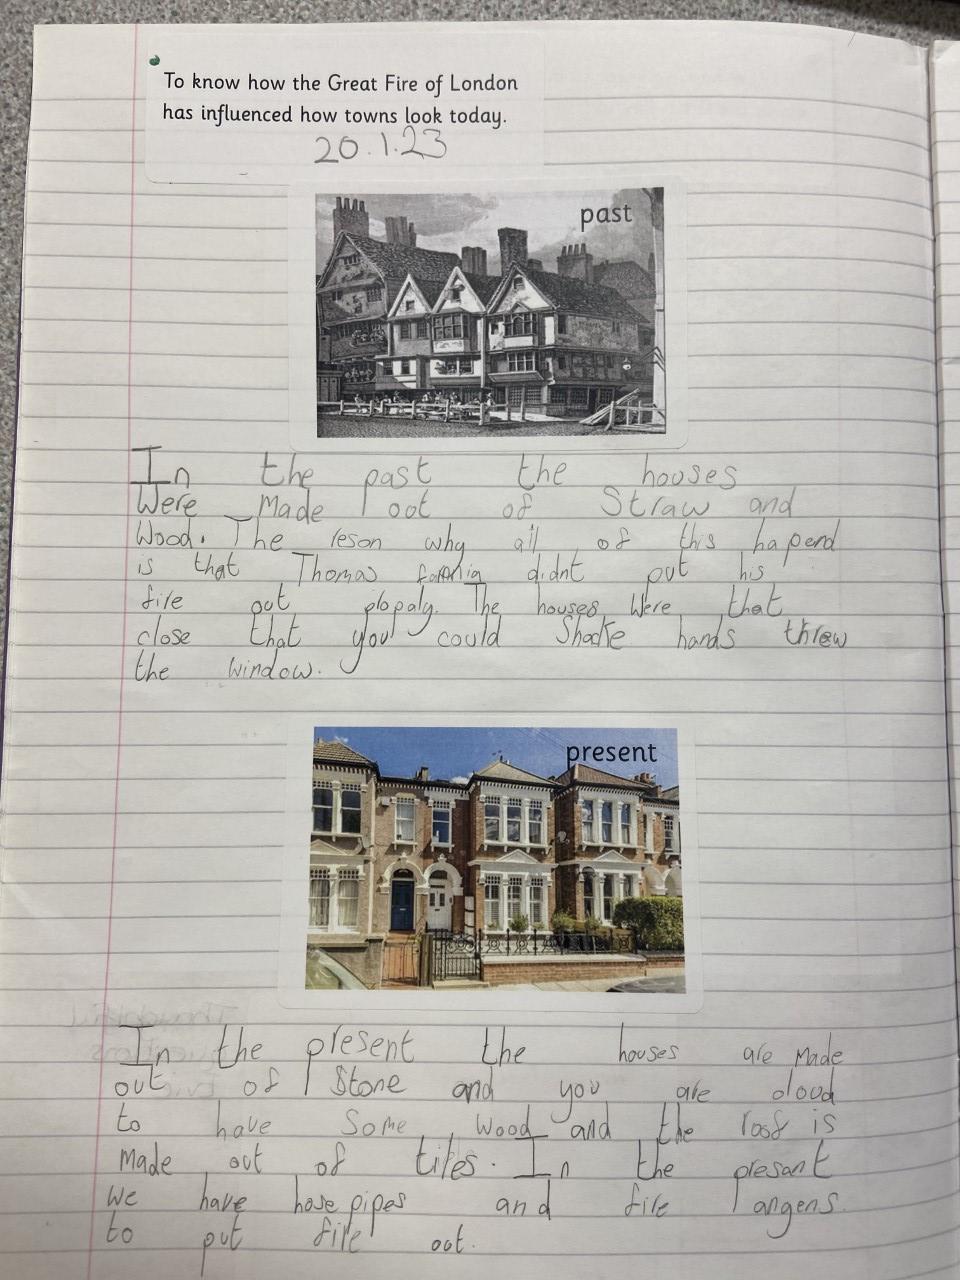 To know how the Great Fire of London
has influenced how towns look today.
20.1.23
past
In the past the houses
Were Made oot of Straw and
Wood. The reson why all of this haperd
is that Thomas didnt put his
fire out plopaly. The houses Were that
close that you could Shacke hands threw
the window.
present
In the present the houses are Made
out of Stone and you are aloud
to have Some wood and the roof is
Made out of tiles. In the presant
we have hose pipes and fire angens.
to put fire oot.